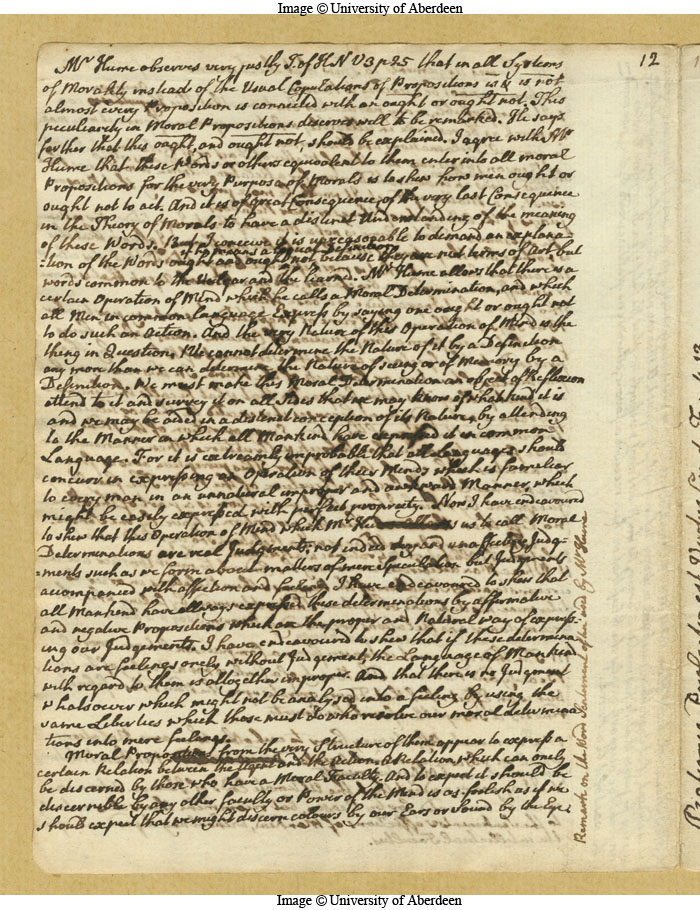 Image © University of Aberdeen
12
Mr Hume observes very justly T. of H N V 3 p 25 that in all Systems
of Morality instead of the Usual Copulations of Propositions is & is not
almost every Proposition is connected with an ought or ought not. This
peculiarity in Moral Propositions deserves well to be remarked. He says
farther that this ought, and ought not, should be explained. I agree with Mr
Hume that these Words or others equivalent to them enter into all moral
Propositions for the very Purpose of Morals is to shew how men ought or
ought not to act. And it is of great Consequence of the very last Consequence
in the Theory of Morals to have a distinct Understanding of the meaning
of these Words. But I conceive it is unreasonable to demand an explana=
=tion of the Words ought and ought not, because they are not terms of Art, but
words common to the Vulgar and the learned. Mr Hume allows that there is a
certain Operation of Mind which he calls a Moral Determination, and which
all Men in common Language Express by saying one ought or ought not
to do such an Action. And the very Nature of this Operation of Mind is the
thing in Question. We cannot determine the Nature of it by a Definition
any more than we can determine the Nature of seeing or of Memory by a
Definition. We must make this Moral Determination an object of Reflexion
attend to it and survey it on all sides that we may know of what kind it is
and we may be aided in a distinct conception of its Nature, by attending
to the Manner in which all Mankind have expressed it in common
Language. For it is extreamly improbable that all Languages should
concurr in expressing an Operation of their Minds which is familiar
to every man in an unnatural improper and awkward Manner, which
might be easily expressed with perfect propriety. Now I have endeavoured
to shew that this Operation of Mind which Mr us to call Moral
Determinations are real Judgments, not indeed and unaffecting Judg-
=ments such as we form about matters of mere Speculation but Judgments
accompanied with affection and feeling. I have endeavoured to shew that
all Mankind have allways expressed these determinations by affirmative
and negative Propositions which are the proper and Natural way of express:
ing our Judgements. I have endeavoured to shew that if these determina
tions are feelings onely without Judgement, the Language of Mankind
with regard to them is altogether improper. And that there is no Judgment
whatsoever which might not be analysed into a feeling by using the
same Liberties which those must do who resolve our moral determina
tions into mere feelings.
Moral Propositions from the very Structure of them appear to express a
certain Relation between the Agent and the Action, a Relation which can onely
be discerned by those who have a Moral Faculty. And to expect it should be
discernible by any other faculty or Power of the Mind is as foolish as if we
should expect that we might discern colours by our Ears or Sound by the Eye
Remark on the Moral Sentiment of by Mr Hume
Image © University of Aberdeen